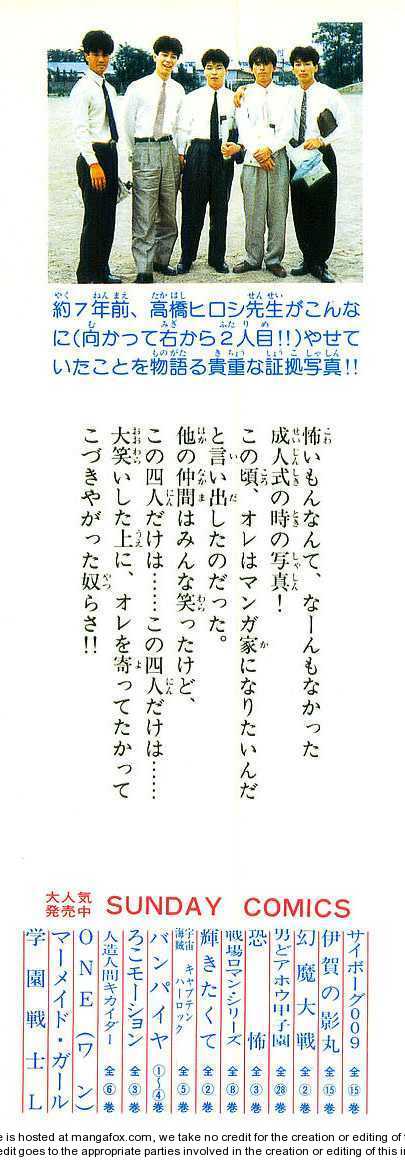 約7年前、高橋ヒロシ先生がこんな
に(向かって右から2人目!!)やせて
いたことを物語る貴重な証拠写真!!
怖いもんなんて、なーんもなかった
成人式の時の写真!
この頃、オレはマンガ家になりたいんだ
と言い出したのだった。
他の仲間はみんな笑ったけど、
この四人だけは……この四人だけは……
大笑いした上に、オレを寄ってたかって
こづきやがった奴らさ!!
大人気
発売中
SUNDAY COMICS
サイボーグ009 全⑮巻
伊賀の影丸 全⑮巻
幻魔大戦 全②巻
男どアホウ甲子園 全㉘巻
恐怖 全③巻
戦場ロマン・シリーズ 全⑧巻
輝きたくて 全②巻
宇宙海賊キャプテンハーロック 全⑤巻
バンパイヤ ①~④巻
ろこモーション 全③巻
人造人間キカイダー 全⑥巻
ONE(ワン)
マーメイド・ガール
学園戦士L
e is hosted at mangafox.com, we take no credit for the creation or editing of
edit goes to the appropriate parties involved in the creation or editing of this i